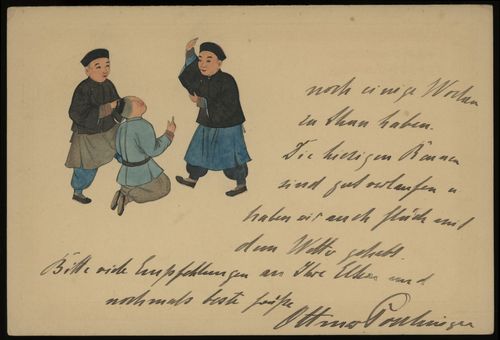 noch einige Wochen
zu thun haben.
Die hiesigen Rennen
sind gut verlaufen u
haben wir auch Glück mit
dem Wetter gehabt.
Bitte viele Empfehlungen an Ihre Eltern und
nochmals beste Grüße